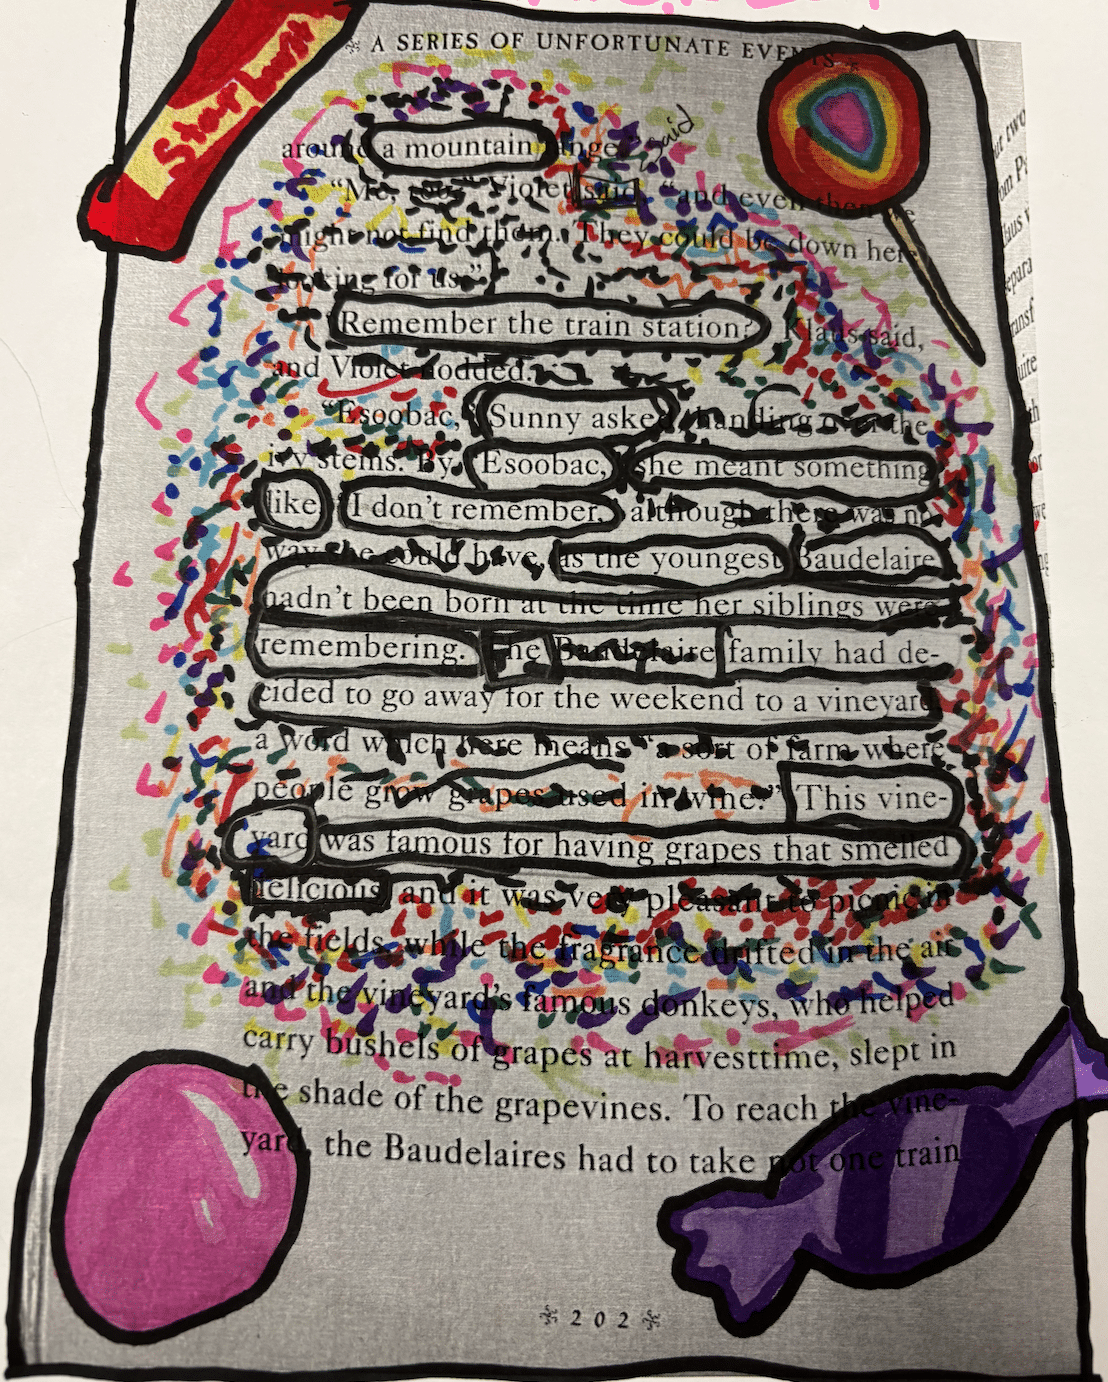 A SERIES OF UNFORTUNATE EVENTS
Star burst
around a mountain range." said
"Me, too," Violet said, "and even then we
might not find them. They could be down here
looking for us."
"Remember the train station?" Klaus said,
and Violet nodded.
"Esoobac," Sunny asked, handing over the
ivy stems. By "Esoobac," she meant something
like "I don't remember," although there was no
way she could have, as the youngest Baudelaire
hadn't been born at the time her siblings were
remembering. The Baudelaire family had de-
cided to go away for the weekend to a vineyard,
a word which here means "a sort of farm where
people grow grapes used in wine." This vine-
yard was famous for having grapes that smelled
delicious and it was very pleasant to picnic in
the fields, while the fragrance drifted in the air
and the vineyard's famous donkeys, who helped
carry bushels of grapes at harvesttime, slept in
the shade of the grapevines. To reach the vine-
yard, the Baudelaires had to take not one train
202